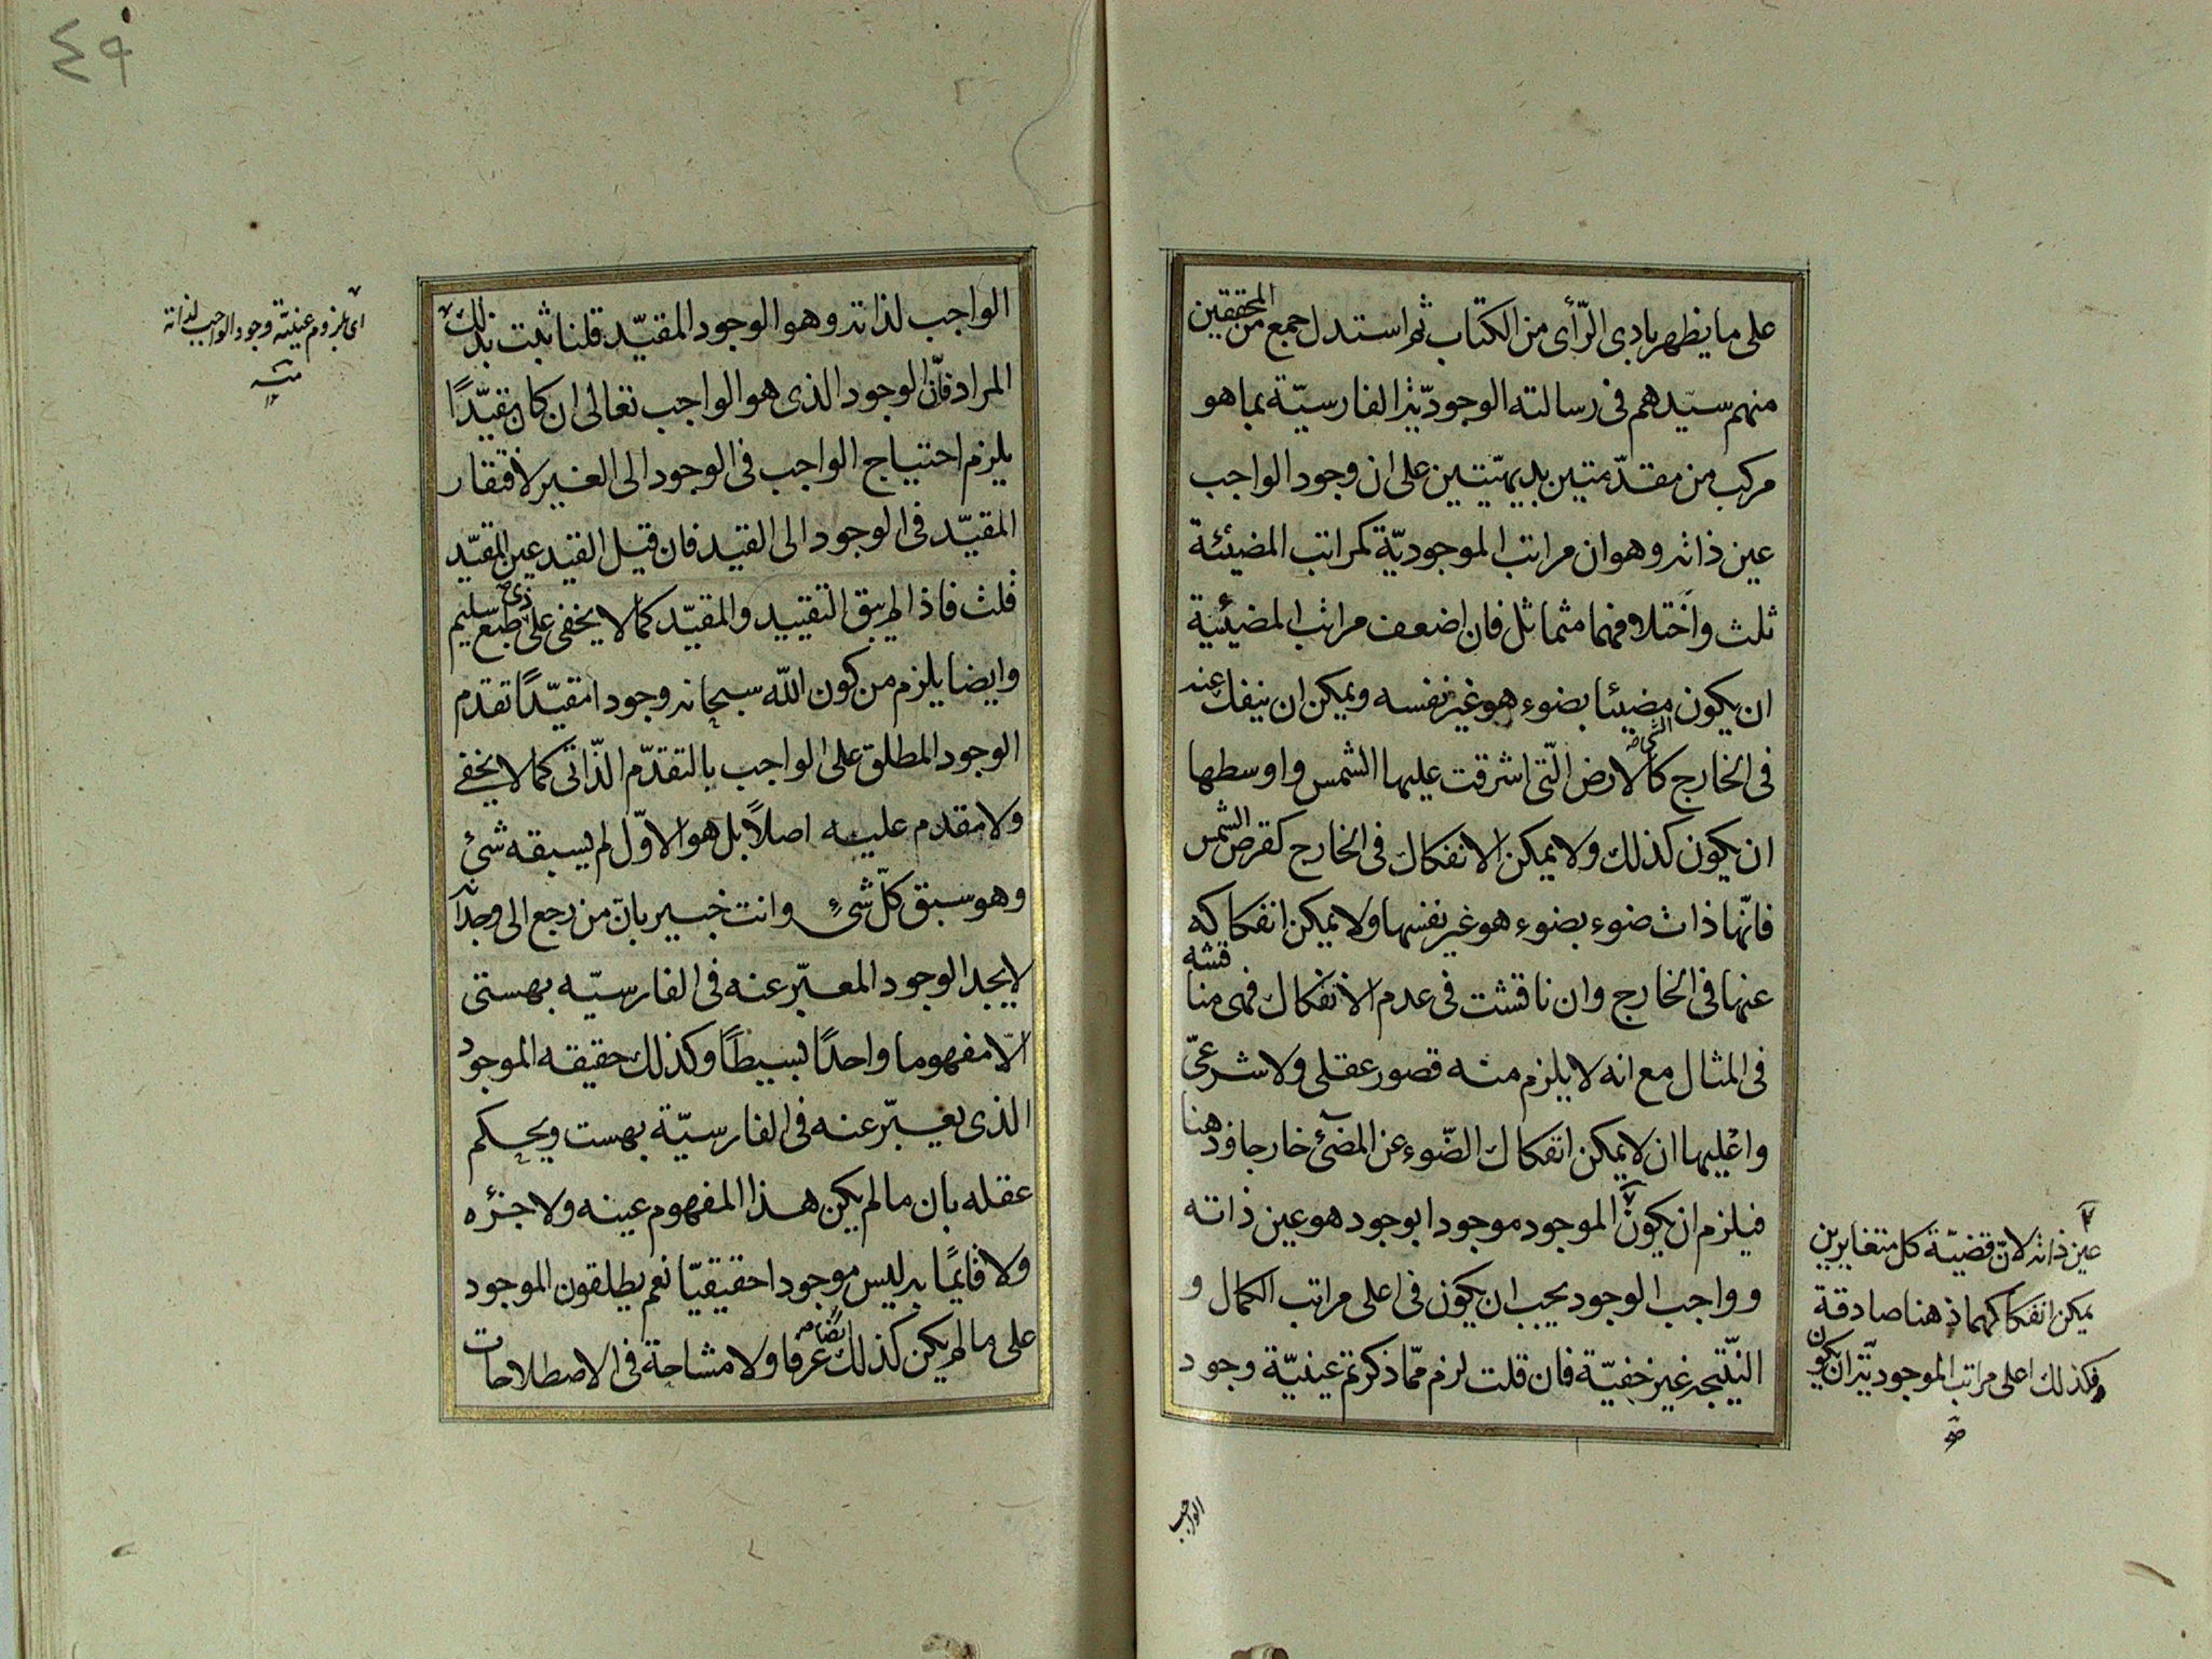 على ما يظهر بادى الرّأى من الكتاب ثم استدل جمع من المحققين
منهم سيدهم فى رسالته الوجوديّة الفارسيّة بما هو
مركب من مقدّمتين بديهيّتين على ان وجود الواجب
عين ذاته وهو ان مراتب الموجوديّة كمراتب المضيئة
ثلث واختلافهما متماثل فان اضعف مراتب المضيئية
ان يكون مضيئا بضوء هو غير نفسه ويمكن ان ينفك عنه
فى الخارج كالارض الّتى اشرقت عليها الشمس واوسطها
ان يكون كذلك ولا يمكن الانفكاك فى الخارج كقرص الشمس
فانّها ذات ضوء بضوء هو غير نفسها ولا يمكن انفكاكه
عنها فى الخارج وان ناقشت فى عدم الانفكاك فهى مناقشه
فى المثال مع انه لا يلزم منه قصور عقلى ولا شرعىّ
واعليها ان لا يمكن انفكاك الضّوء عن المضئ خارجا وذهنا
فيلزم ان يكون الموجود موجودا بوجود هو عين ذاته
وواجب الوجود يجب ان يكون فى اعلى مراتب الكمال و
النّتيجه غير خفيّة فان قلت لزم ممّا ذكرتم عينيّة وجود
عين ذاته لانّ قضيّة كل متغايرين
يمكن انفكاكهما ذهنا صادقة
فكذلك اعلى مراتب الموجوديّة ان يكون
صح
الواجب
٤٩
الواجب لذاته وهو الوجود المقيّد قلنا ثبت بذلك
المراد فانّ الوجود الذى هو الواجب تعالى ان كان مقيّدًا
يلزم احتياج الواجب فى الوجود الى الغير لافتقار
المقيّد فى الوجود الى القيد فان قيل القيد عين المقيّد
قلت فاذا لم يبق التقييد والمقيّد كما لا يخفى على ذى طبع سليم
وايضا يلزم من كون الله سبحانه وجودا مقيّدًا تقدم
الوجود المطلق على الواجب بالتقدّم الذّاتى كما لا يخفى
ولا مقدم عليه اصلاً بل هو الاوّل لم يسبقه شئ
وهو سبق كلّ شئٍ وانت خبير بانّ من رجع الى وجدانه
لا يجد الوجود المعبّر عنه فى الفارسيّه بهستى
الّا مفهوما واحدًا بسيطًا وكذلك حقيقه الموجود
الذى يعبّر عنه فى الفارسيّة بهست ويحكم
عقله بان ما لم يكن هذا المفهوم عينه ولا جزؤه
ولا قايمًا به ليس موجودا حقيقيّا نعم يطلقون الموجود
على ما لم يكن كذلك ايضا عرفا ولا مشاحة فى الاصطلاحات
اى بلزوم عينيّة وجود الواجب لذاته
منه